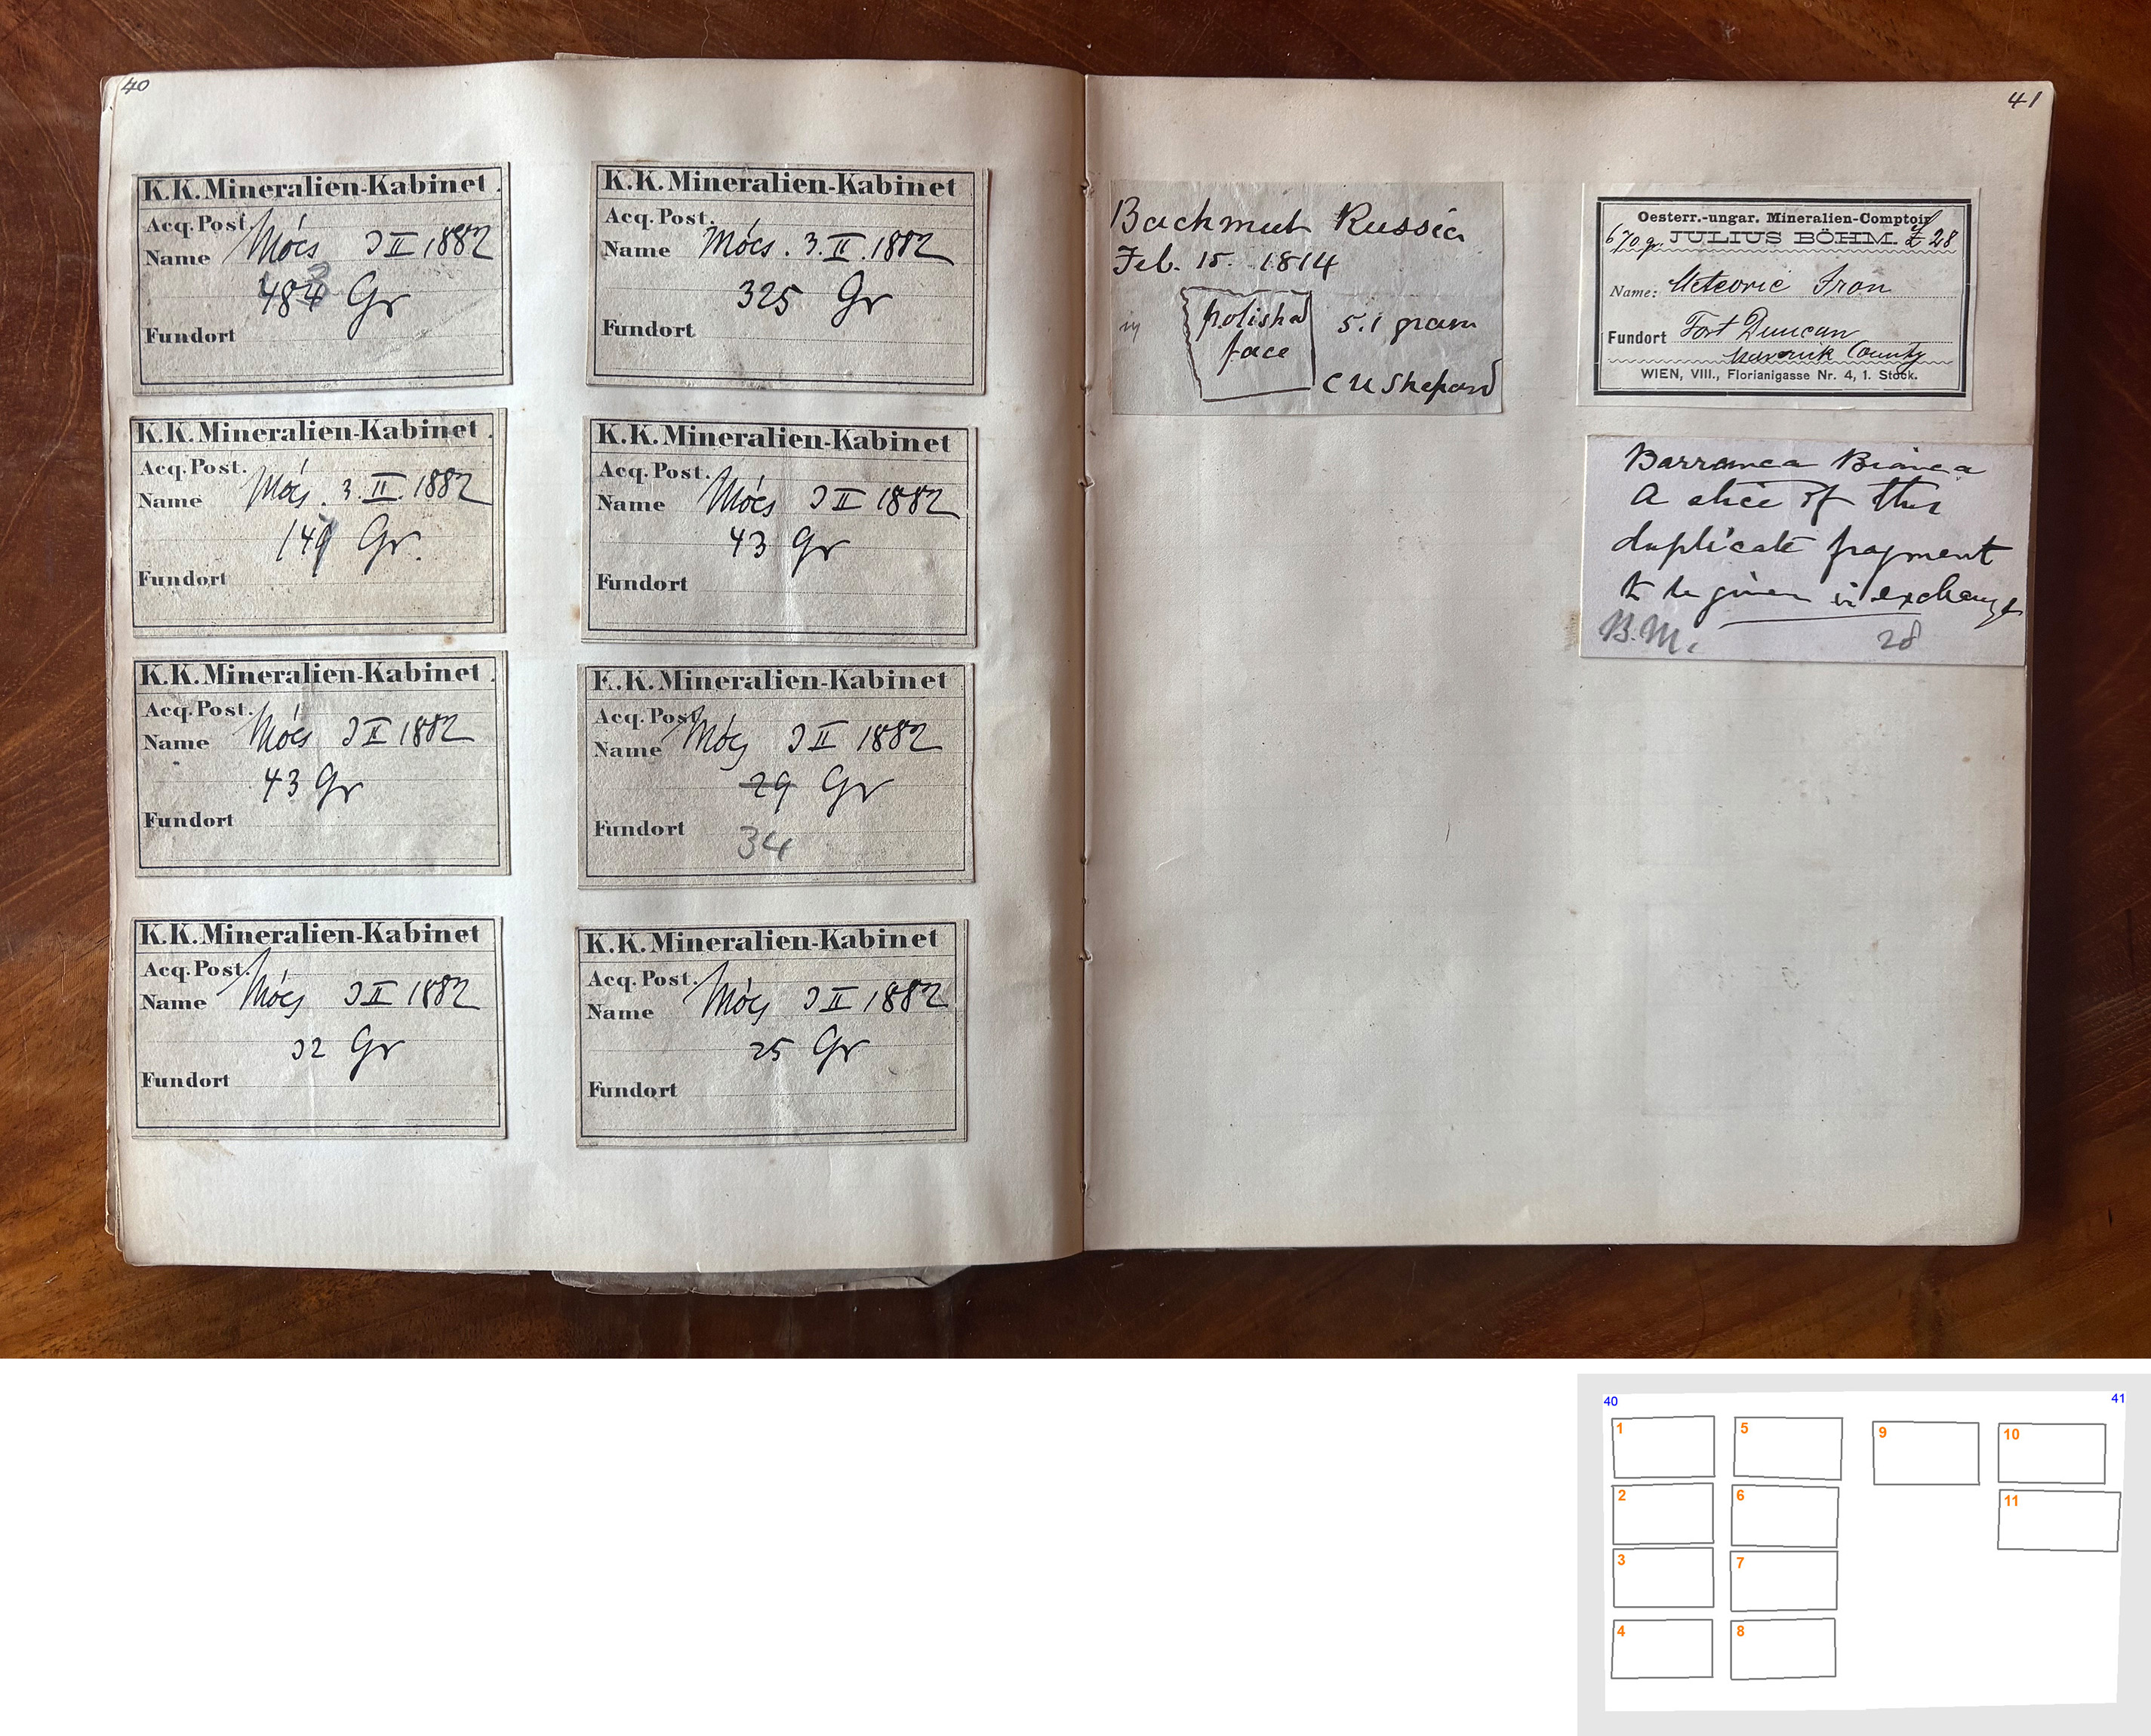 40
K.K.Mineralien-Kabinet.
Acq. Post.
Name Mócs 3 II 1882
Gr
Fundort
K.K.Mineralien-Kabinet.
Acq. Post.
Name Mócs. 3. II. 1882
149 Gr.
Fundort
K.K.Mineralien-Kabinet.
Acq. Post.
Name Mócs 3 II 1882
43 Gr
Fundort
K.K.Mineralien-Kabinet
Acq. Post.
Name Mócs 3 II 1882
32 Gr
Fundort
K.K.Mineralien-Kabinet
Acq. Post.
Name Mócs. 3. II. 1882
325 Gr
Fundort
K.K.Mineralien-Kabinet
Acq. Post.
Name Mócs 3 II 1882
43 Gr
Fundort
K.K.Mineralien-Kabinet
Acq. Post.
Name Mócs 3 II 1882
29 Gr
Fundort
34
K.K.Mineralien-Kabinet
Acq. Post.
Name Mócs 3 II 1882
25 Gr
Fundort
41
Bachmut Russia
Feb. 15. 1814
polished
face
5.1 gram
C U Shepard
Oesterr.-ungar. Mineralien-Comptoir
670 gr. JULIUS BÖHM. £ 28
Name: Meteoric Iron
Fundort Fort Duncan
Maverick County
WIEN, VIII., Florianigasse Nr. 4, 1. Stock.
Barranca Bianca
A slice of this
duplicate fragment
to be given in exchange
B.M. 28
40
41
1
5
9
10
2
6
11
3
7
4
8